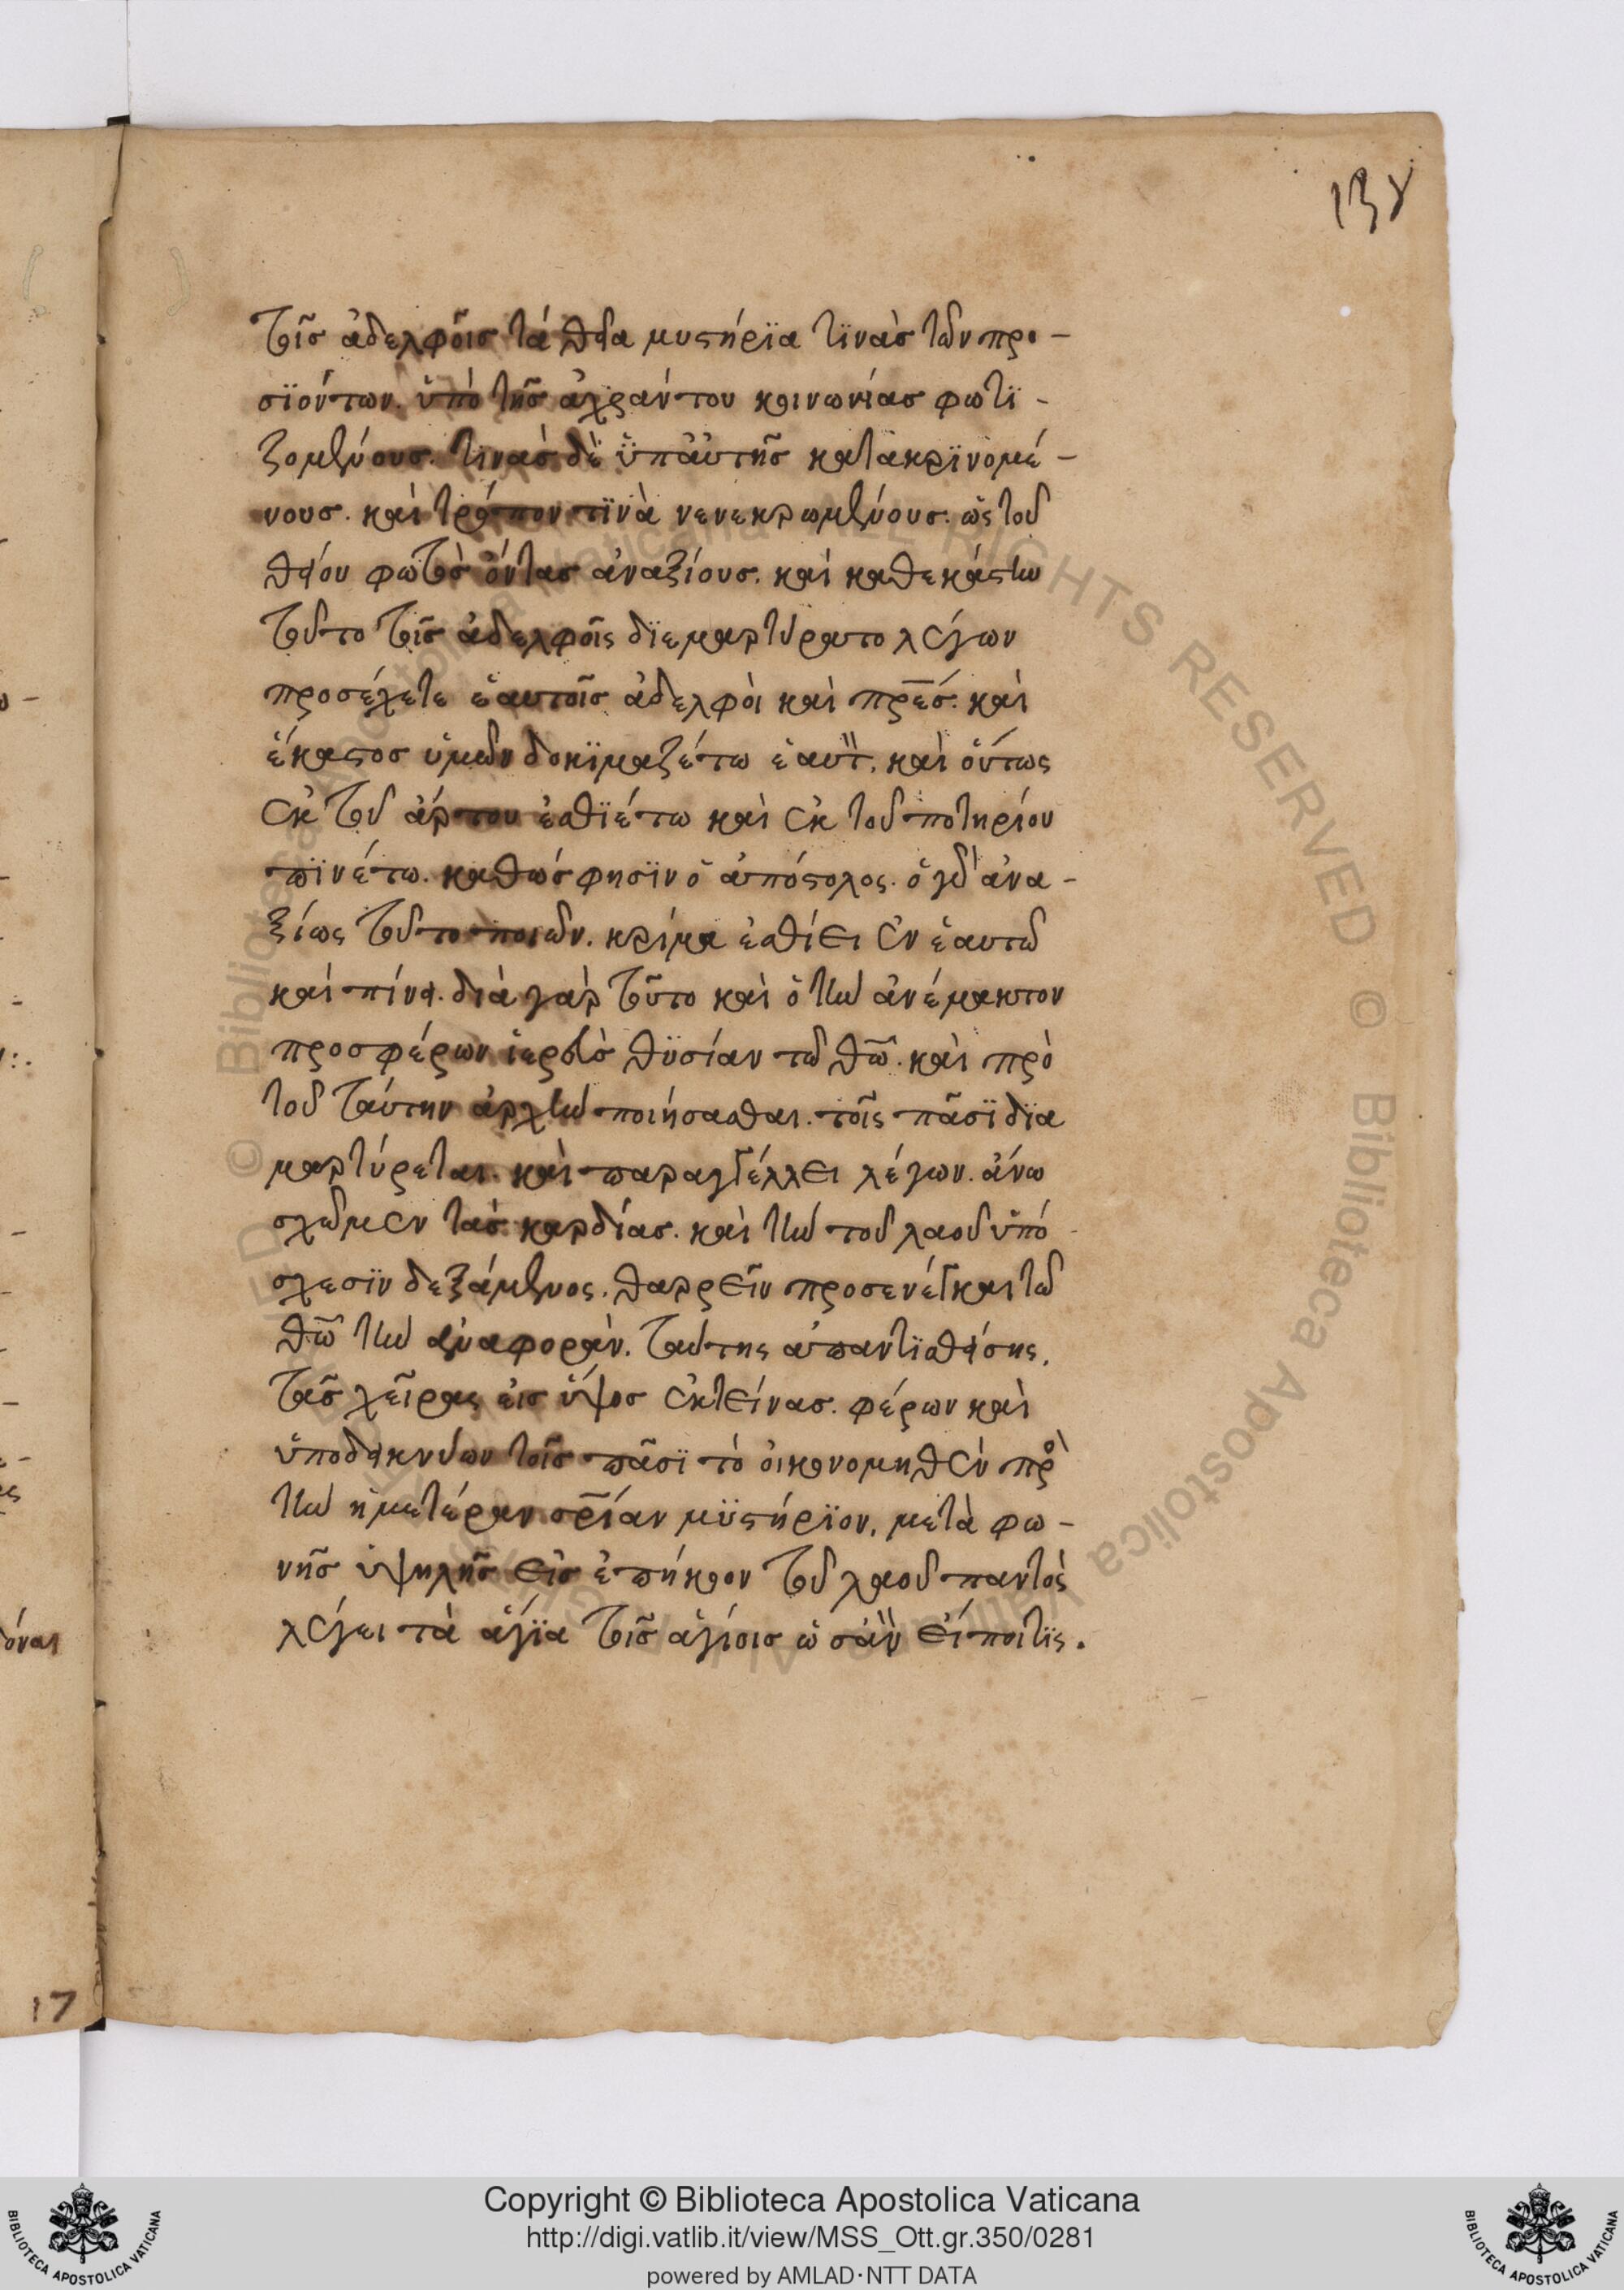 138
τοῖσ ἀδελφοῖσ τά θεῖα μυστήρϊα τϊνὰσ τῶν προ-
σϊόντων. ὑπὸ τῆσ ἀχράντου κοινωνίασ φωτϊ-
ζομένουσ. τινασ δὲ ὑπ' ἀυτῆσ κατακρϊνομέ-
νουσ. καὶ τρόπον τϊνὰ νενεκρωμένουσ. ὡς τοῦ
θείου φωτὸσ ὄντασ ἀναξίουσ. καὶ καθεκάστην
τοῦτο τοῖσ ἀδελφοῖς δϊεμαρτύρατο λέγων
προσέχετε ἑαυτοῖσ ἀδελφοὶ καὶ πρ̅ε̅σ. καὶ
ἕκαστοσ ὑμῶν δοκϊμαζέτω ἑαυτ̏. καὶ ὅυτως
ἐκ τοῦ ἄρτου ἐσθϊέτω καὶ ἐκ τοῦ ποτηρίου
πϊνέτω. καθὼσ φησϊν ὁ ἀπόστολος. ὁ γὰρ ἀνα-
ξίως τοῦτο ποιῶν. κρίμα ἐσθίει ἐν ἑαυτῶ
καὶ πίνει. διὰ γὰρ τοῦτο καὶ ὁ τὴν ἀνέμακτον
προσφέρων ἱερεὺσ θϋσίαν τῶ θῶ. καὶ πρὸ
τοῦ ταύτην ἀρχὴν ποιήσασθαι. τοῖς πᾶσϊ δϊα
μαρτύρεται. καὶ παραγγέλλει λέγων. ἄνω
σχῶμεν τὰσ καρδίασ. καὶ τὴν τοῦ λαοῦ ὑπό
σχεσϊν δεξάμενος. θαρρεῖν προσενέγκαι τῶ
θῶ τὴν ἀναφορὰν. ταύτης ἀπαντϊσθείσης.
τὰσ χεῖρας ἐισ ὕψοσ ἐκτείνασ. φέρων καὶ
ὑποδεικνύων τοῖσ πᾶσϊ τὸ ὀικονομηθὲν πρὸ
τὴν ἡμετέραν σρ̅ίαν μϋστήρϊον. μετὰ φω-
νῆσ ὑψηλῆσ εἰσ ἐπήκοον τοῦ λαοῦ παντὸς
λέγει τὰ ἅγϊα τοῖσ ἁγίοισ ὡσὰν εἴποι τϊς.
17
© Biblioteca Apostolica Vaticana ALL RIGHTS RESERVED
Copyright © Biblioteca Apostolica Vaticana
http://digi.vatlib.it/view/MSS_Ott.gr.350/0281
powered by AMLAD·NTT DATA
BIBLIOTECA APOSTOLICA VATICANA
BIBLIOTECA APOSTOLICA VATICANA